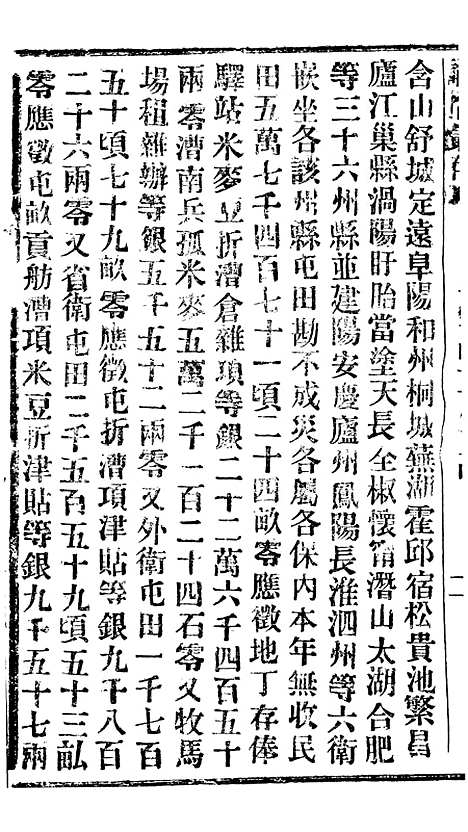 含山舒城定遠阜陽和州桐城蕪湖霍邱宿松貴池繁昌
廬江巢縣渦陽盱眙當塗天長全椒懷甯潛山太湖合肥
等三十六州縣並建陽安慶廬州鳳陽長淮泗州等六衛
嵌坐各該州縣屯田勘不成災各屬各保內本年無收民
田五萬七千四百七十一頃二十四畝零應徵地丁存俸
驛站米麥豆折漕倉雜項等銀二十二萬六千四百五十
兩零漕南兵孤米麥五萬二千一百二十四石零又牧馬
場租雜辦等銀五千五十二兩零又外衛屯田一千七百
五十頃七十九畝零應徵屯折漕項津貼等銀九千八百
二十六兩零又省衛屯田二千五百五十九頃五十三畝
零應徵屯畝貢舫漕項米豆折津貼等銀九千五十七兩